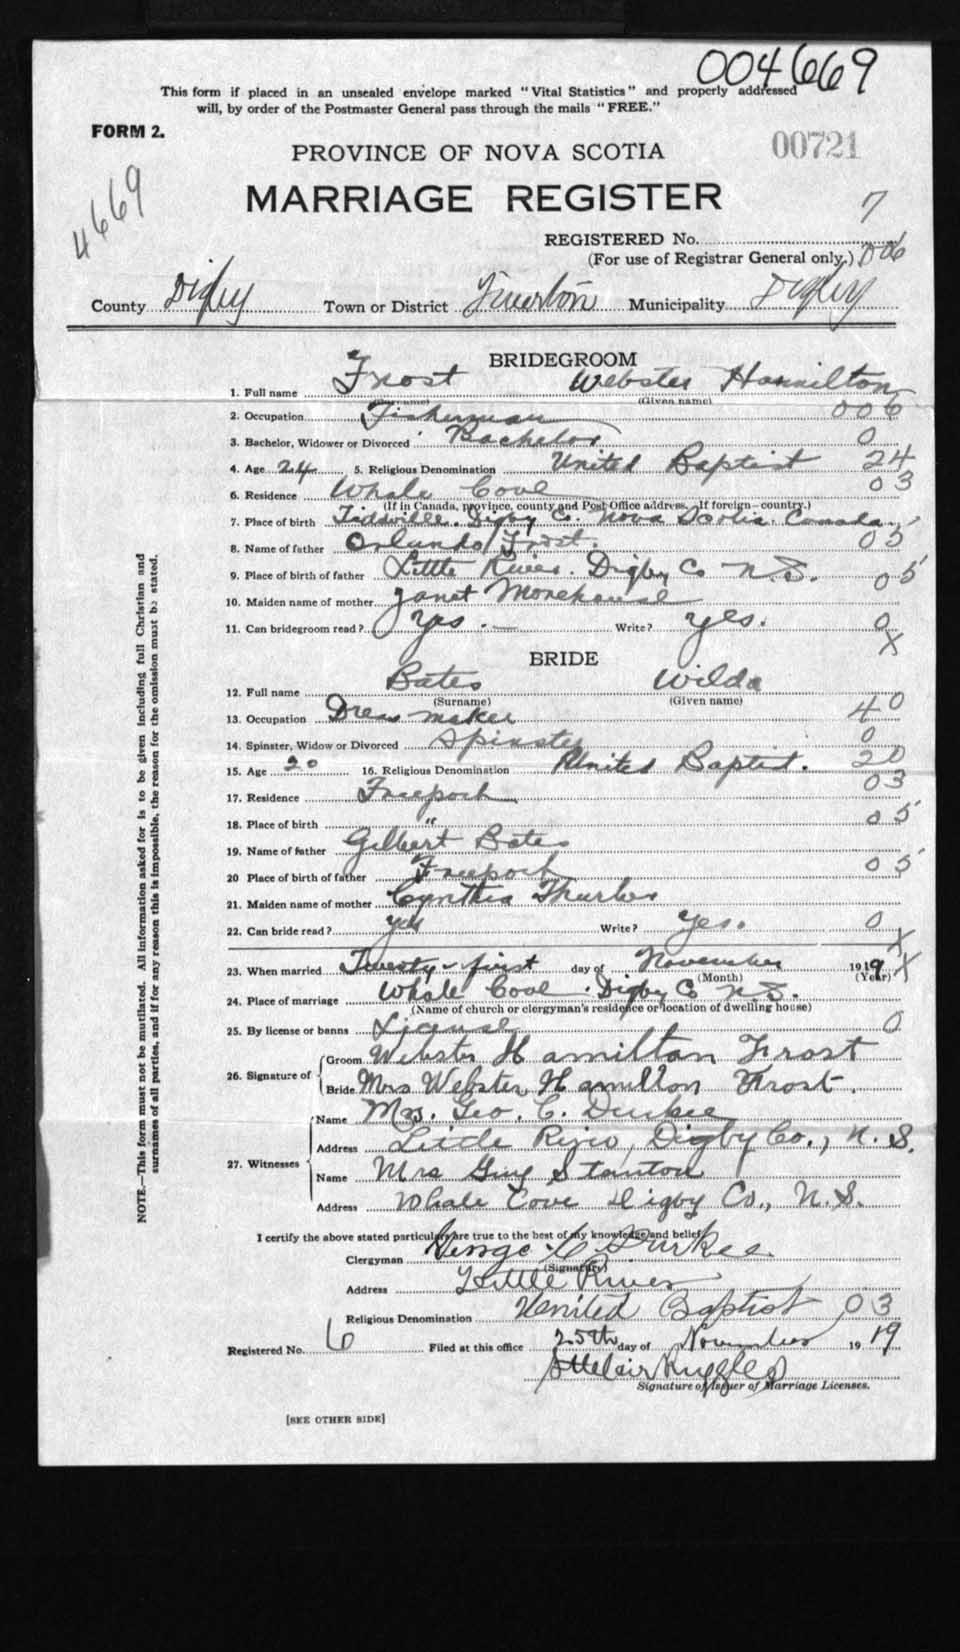 004669
This form if placed in an unsealed envelope marked "Vital Statistics" and properly addressed
will, by order of the Postmaster General pass through the mails "FREE."
FORM 2.
00721
4669
PROVINCE OF NOVA SCOTIA
MARRIAGE REGISTER
7
REGISTERED No.
(For use of Registrar General only.) 006
County Digby Town or District Tiverton Municipality Digby
BRIDEGROOM
1. Full name Frost Webster Hamilton
(Surname) (Given name)
2. Occupation Fisherman 006
3. Bachelor, Widower or Divorced Bachelor 0
4. Age 24 5. Religious Denomination United Baptist 24
6. Residence Whale Cove 03
(If in Canada, province, county and Post Office address. If foreign—country.)
7. Place of birth Tidville. Digby Co. Nova Scotia. Canada.
8. Name of father Orlando Frost. 05
9. Place of birth of father Little River. Digby Co N.S. 05
10. Maiden name of mother Janet Morehouse
11. Can bridegroom read? Yes. Write? Yes. 0
X
BRIDE
12. Full name Bates Wilda
(Surname) (Given name)
13. Occupation Dress maker 40
14. Spinster, Widow or Divorced Spinster 0
15. Age 20 16. Religious Denomination United Baptist. 20
17. Residence Freeport 03
18. Place of birth " 05
19. Name of father Gilbert Bates
20 Place of birth of father Freeport 05
21. Maiden name of mother Cynthia Thurber
22. Can bride read? yes Write? Yes. 0
X
23. When married Twenty-first day of November 1919 X
(Month) (Year)
24. Place of marriage Whale Cove. Digby Co N.S.
(Name of church or clergyman's residence or location of dwelling house)
25. By license or banns License 0
26. Signature of Groom Webster Hamilton Frost
Bride Mrs Webster Hamilton Frost.
27. Witnesses Name Mrs. Geo. C. Durkee
Address Little River, Digby Co., N.S.
Name Mrs Guy Stanton
Address Whale Cove Digby Co., N.S.
I certify the above stated particulars are true to the best of my knowledge and belief.
Clergyman George C Durkee.
(Signature)
Address Little River
Religious Denomination United Baptist 03
Registered No. 6 Filed at this office 25th day of November 1919
Ruggles
Signature of Issuer of Marriage Licenses.
[SEE OTHER SIDE]
NOTE.—This form must not be mutilated. All information asked for is to be given including full Christian and
surnames of all parties, and if for any reason this is impossible, the reason for the omission must be stated.